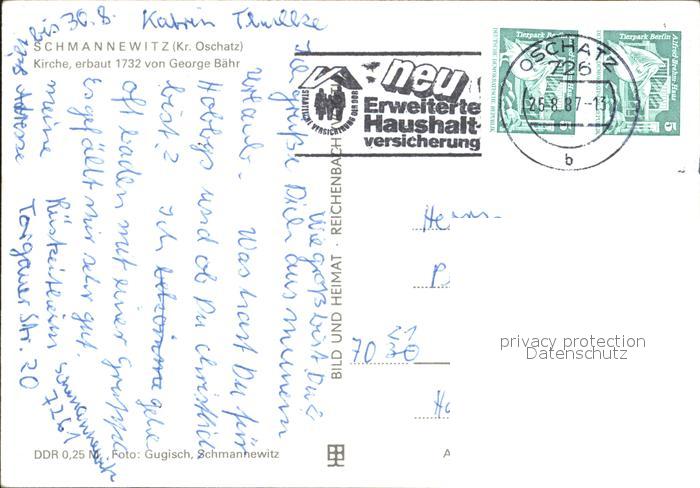 bis 30.8.
Katrin
SCHMANNEWITZ (Kr. Oschatz)
Kirche, erbaut 1732 von George Bähr
Ich grüße Dich aus meinem
Urlaub. Was hast Du für
Hobbys und ob Du christlich
bist? Ich bekomme gehe
oft baden mit einer Gruppe
Es gefällt mir sehr gut.
meine Adresse
Rüstzeitheim Schmannewitz
7261
Torgauer Str. 20
Wie groß bist Du?
DDR 0,25 M
Foto: Gugisch, Schmannewitz
BILD UND HEIMAT · REICHENBACH
STAATLICHE VERSICHERUNG DER DDR
neu
Erweiterte
Haushalt-
versicherung
OSCHATZ
726
25.8.87-13
b
Tierpark Berlin
DEUTSCHE DEMOKRATISCHE REPUBLIK
5
Tierpark Berlin
Alfred-Brehm-Haus
5
Herrn
7030
21
privacy protection
Datenschutz
A